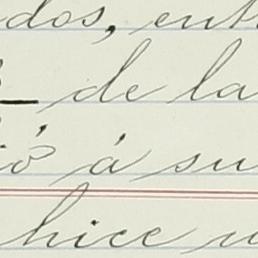 dos, ent
de la
ió á su
hice u